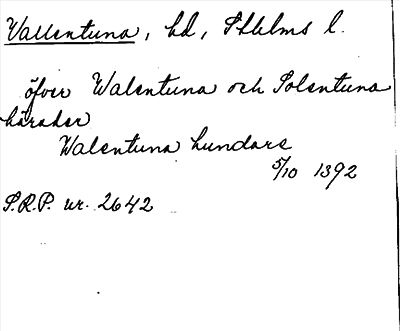 Vallentuna, hd, Sthlms l.
öfver Walentuna och Solentuna
härader
Walentuna hundare
5/10 1392
S.R.P. nr. 2642